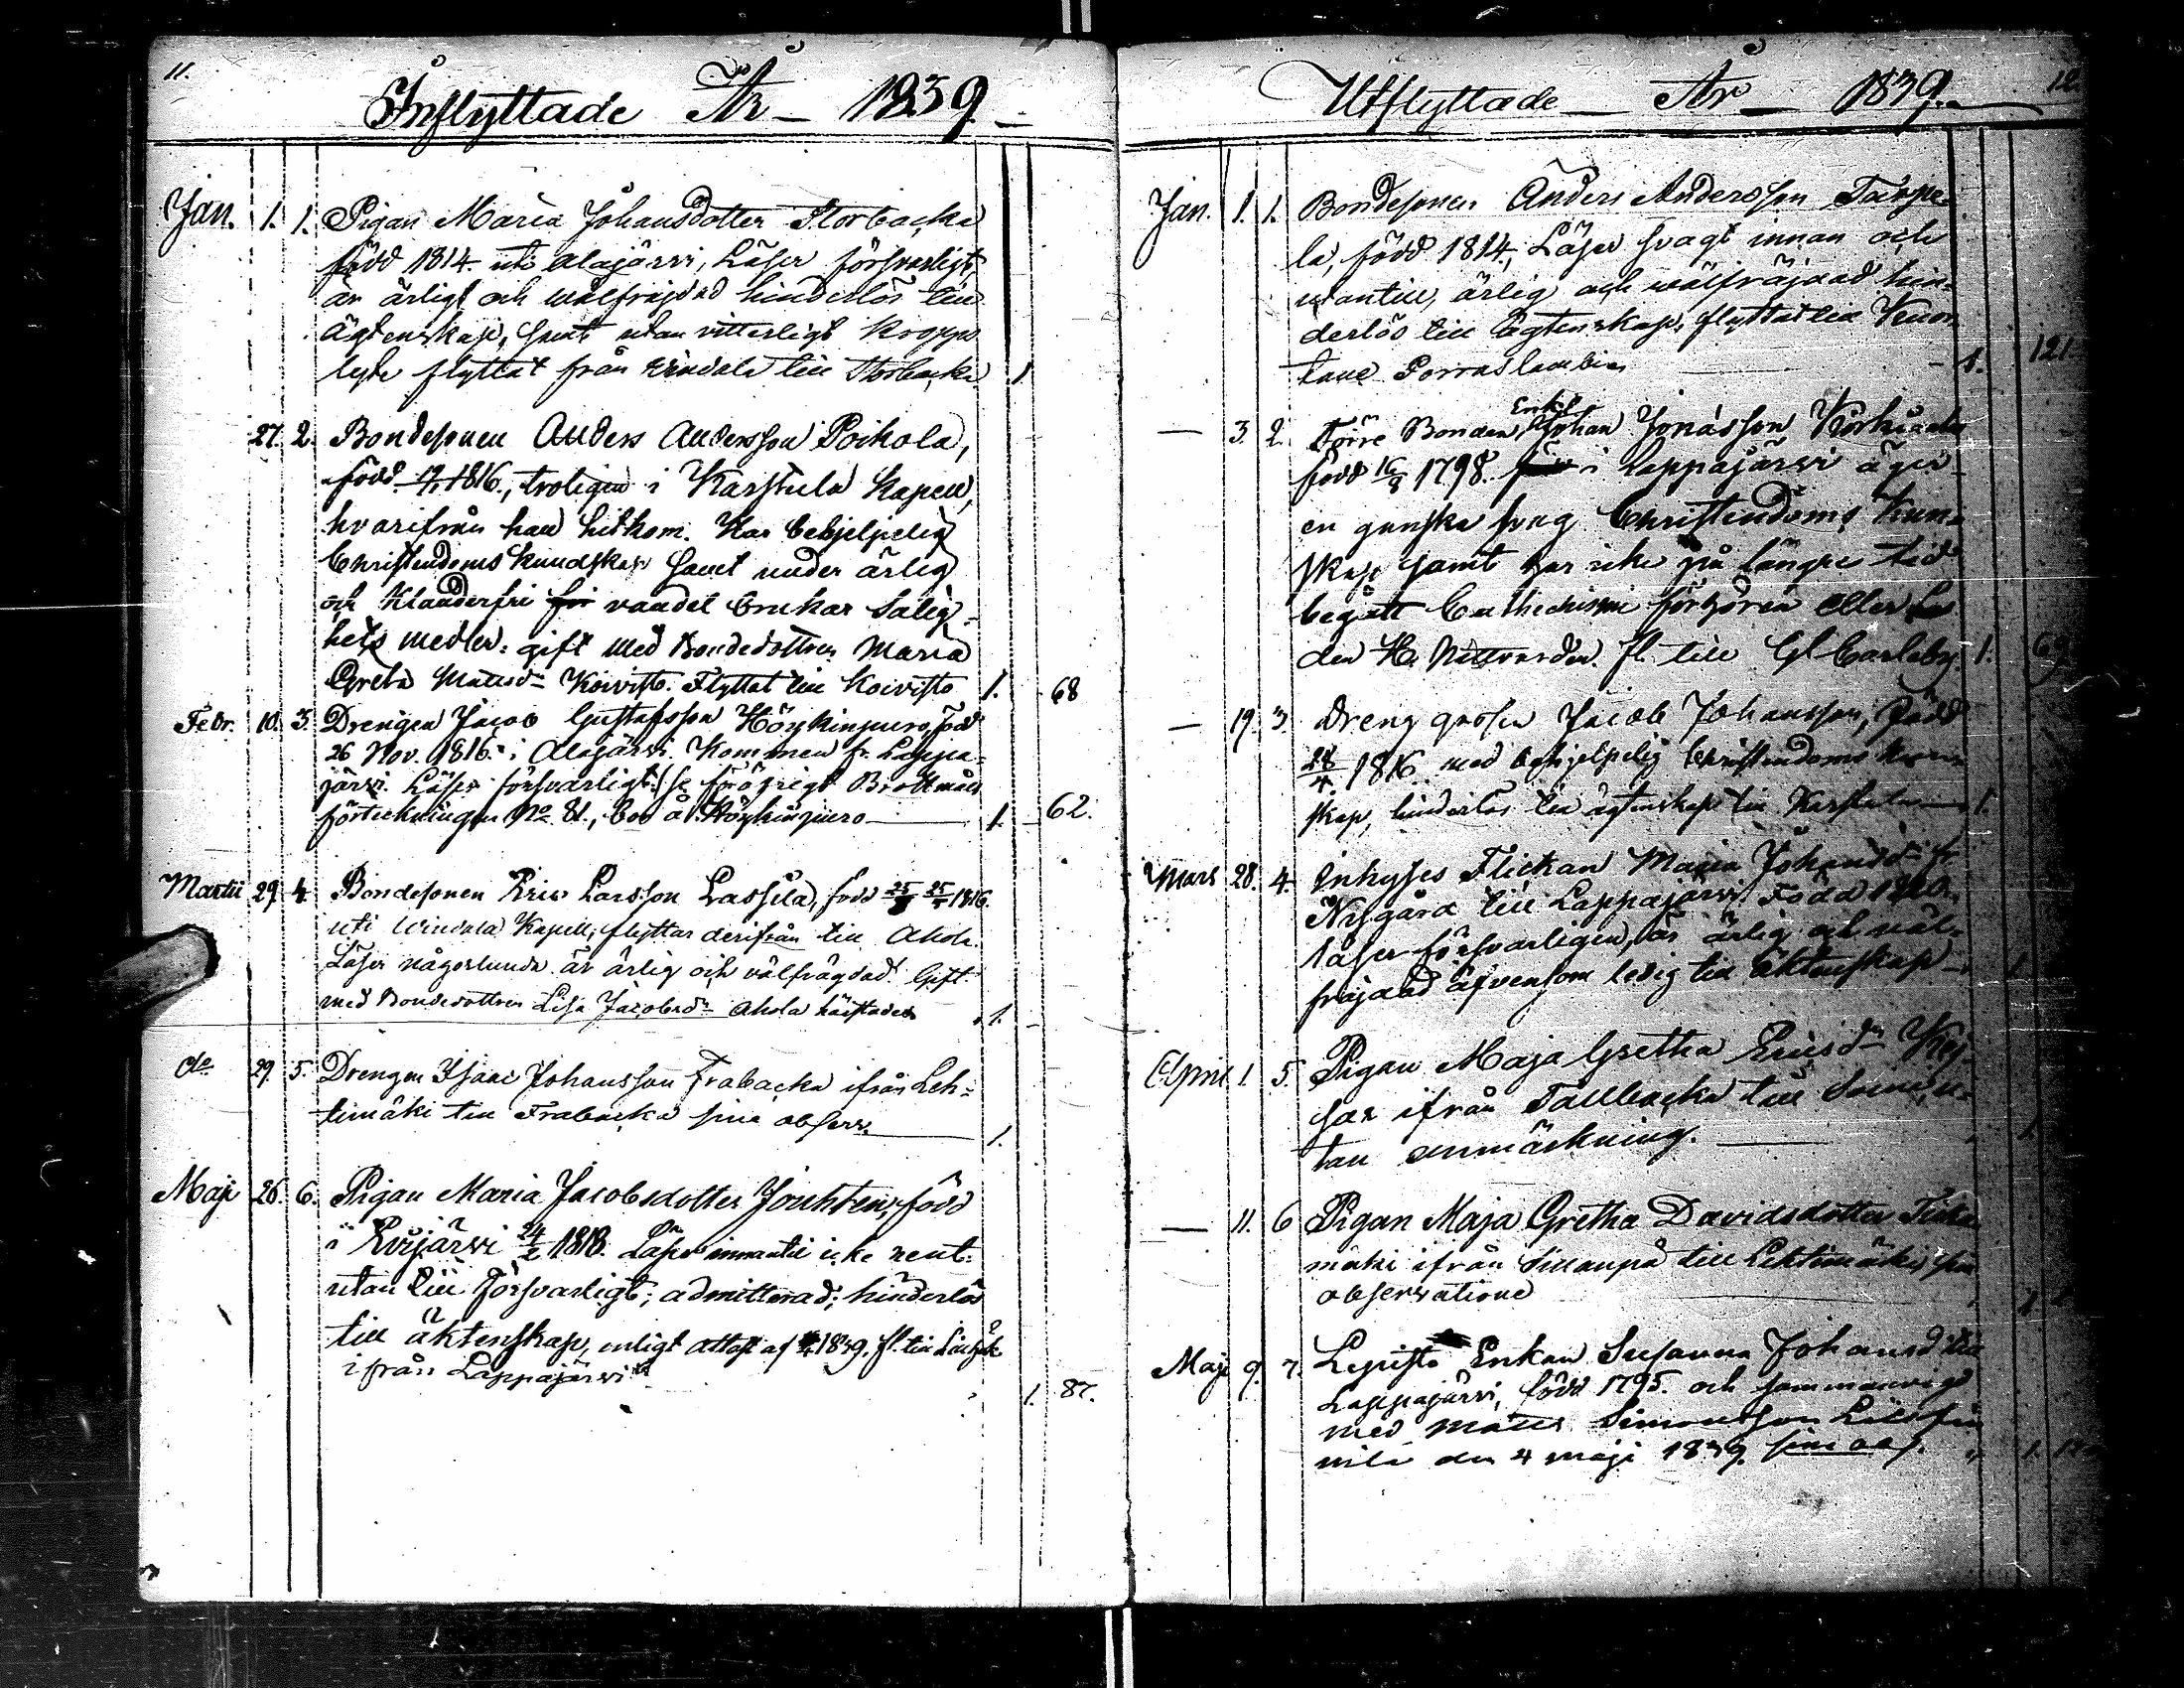 11.
Inflyttade År - 1839.
Jan. 1. 1. Pigan Maria Johansdotter Storbacka
född 1814. uti Alajärvi, Läser försvarligt,
är ärligt och wälfräjdad hinderlös till
Ägtenskap, samt utan vitterligt kropps
lyte flyttat från Windala till Storbacka 1.
27. 2. Bondesonen Anders Andersson Poikola,
född 1816., troligen i Karstula Kapell,
hvarifrån han hitkom. Har behjelpelig
Christendoms Kundskap samt under ärlig
och Klanderfri för vandel brukar Salig-
hets medlen: gift med Bondedottren Maria
Greta Mattsdr Koivisto. Flyttat till Koivisto 1. 68
Febr. 10. 3. Drengen Jacob Gustafsson Höykinpuro, född
26 Nov. 1816. i Alajärvi. Kommen fr. Lappa-
järvi. Läser försvarligt: se föröfrigt Brottmåls
förteckningen No 81., bor å Höykinpuro 1. 62.
Martii 29. 4. Bondesonen Eric Larsson Lassila, född 25 1816.
uti Windala Kapell, flyttar derifrån till Ahola.
Läser någorlunda är ärlig och välfrägdad. Gift
med Bondedottren Lisa Jacobsdr Ahola härstädes 1.
do 29. 5. Drengen Isaac Johansson Frabacka ifrån Leh-
timäki till Frabacka sine observ. 1.
Maji 26. 6. Pigan Maria Jacobsdotter Jouhten, född
i Evijärvi 24 1818. Läser innantil icke rent.
utan till försvarligt; admitterad; hinderlös
till äktenskap, enligt attest af 1839. fl. till
ifrån Lappajärvi 1. 87.
12.
Utflyttade År 1839.
Jan. 1. 1. Bondesonen Anders Andersson Tarpe-
la, född 1814., Läser svagt innan och
utantill, ärlig och wälfräjdad hin-
derlös till Ägtenskap, flyttat till
1. 121.
3. 2. Förre Bonden Enkl. Johan Jonasson
född 16/8 1798. i Lappajärvi äger
en ganska svag Christendoms Kun-
skap samt har icke på längre tid
begått Cathechismi förhören eller
den H. Nattvarden. fl. till Gl Carleby. 1. 69
19. 3. Dreng Jacob Johansson, född
28/4 1816. med behjelpelig Christendoms
skap, hinderlös till ägtenskap till Karstula 1.
Mars 28. 4. Inhyses Flickan Maria Johansdr fr.
Nygård till Lappajärvi. Född
läser försvarligen, är ärlig och väl-
fräjdad äfvensom ledig till äktenskap 1.
April 1. 5. Pigan Maja Gretha Ericsdr
ifrån Tallbacka till Soini, u-
tan anmärkning. 1.
11. 6 Pigan Maja Gretha Davidsdotter
mäki ifrån Sillanpä till Lehtimäki sine
observatione 1.
Maji 9. 7. Lepistö Enkan Susanna Johansdr till
Lappajärvi, född 1795. och sammanvigd
med Matts Simonsson
den 4 maji 1839. sine obs. 1.